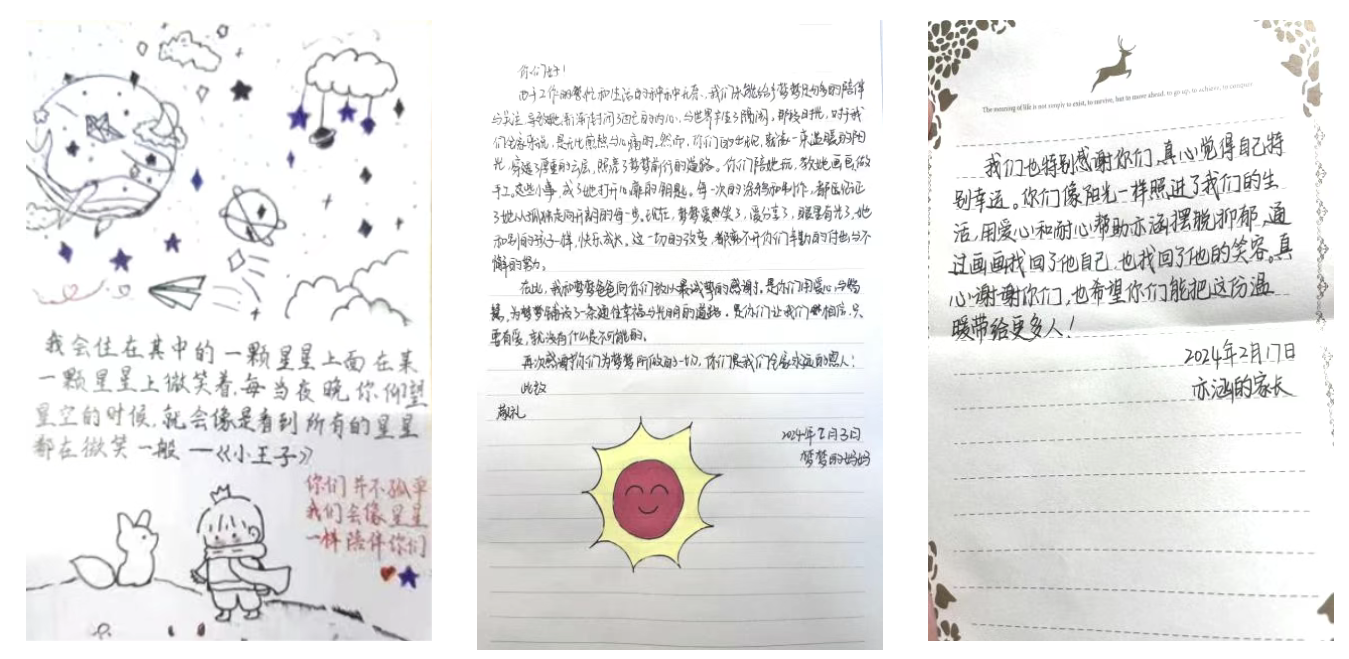 我会住在其中的一颗星星上面在某
一颗星星上微笑着,每当夜晚你仰望
星空的时候,就会像是看到所有的星星
都在微笑一般 —《小王子》
你们并不孤单
我们会像星星
一样陪伴你们
你们好!
由于工作的繁忙和生活的种种,我们未能给予梦梦足够多的陪伴
与关注,导致她渐渐封闭了自己的内心,与世界产生了隔阂。那段日子,对于我
们全家来说,是无比煎熬与心痛的。然而,你们的出现,就像一束温暖的阳
光,穿透了厚重的云层,照亮了梦梦前行的道路。你们陪她玩,教她画画做
手工,这些小事,成了她打开心扉的钥匙。每一次的涂鸦和制作,都在见证
了她从孤独走向开朗的每一步。现在,梦梦爱笑了,爱分享了,眼里有光了,她
和别的孩子一样,快乐成长。这一切的改变,都离不开你们辛勤的付出与不
懈的努力。
在此,我和梦梦爸爸向你们致以最诚挚的感谢。是你们用爱心与智
慧,为梦梦铺设了一条通往幸福与光明的道路。是你们让我们相信,只
要有爱,就没有什么是不可能的。
再次感谢你们为梦梦所做的一切,你们是我们全家永远的恩人!
此致
敬礼
2024年2月3日
梦梦的妈妈
The meaning of life is not simply to exist, to survive, but to move ahead, to go up, to achieve, to conquer
我们也特别感谢你们,真心觉得自己特
别幸运。你们像阳光一样照进了我们的生
活,用爱心和耐心帮助亦涵摆脱抑郁,通
过画画找回了他自己,也找回了他的笑容。真
心谢谢你们,也希望你们能把这份温
暖带给更多人!
2024年2月17日
亦涵的家长